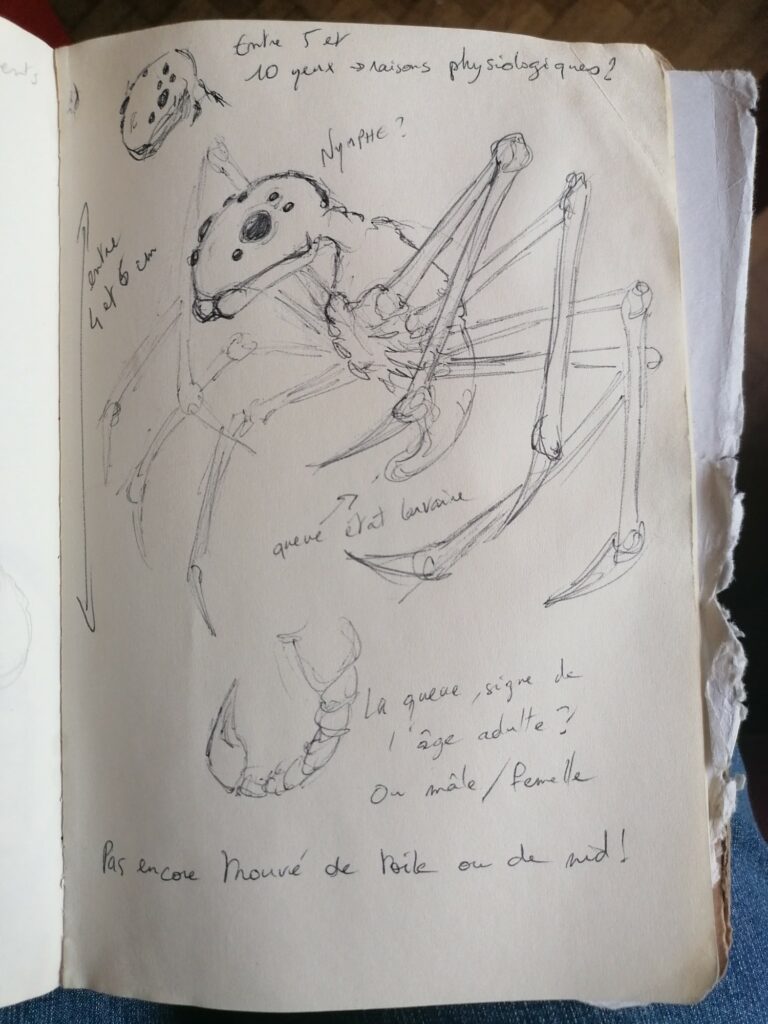 Entre 5 et
10 yeux → raisons physiologiques?
NYMPHE?
entre
4 et 6 cm
queue état larvaire
La queue, signe de
l'âge adulte?
Ou mâle/femelle
Pas encore trouvé de toile ou de nid!
ents